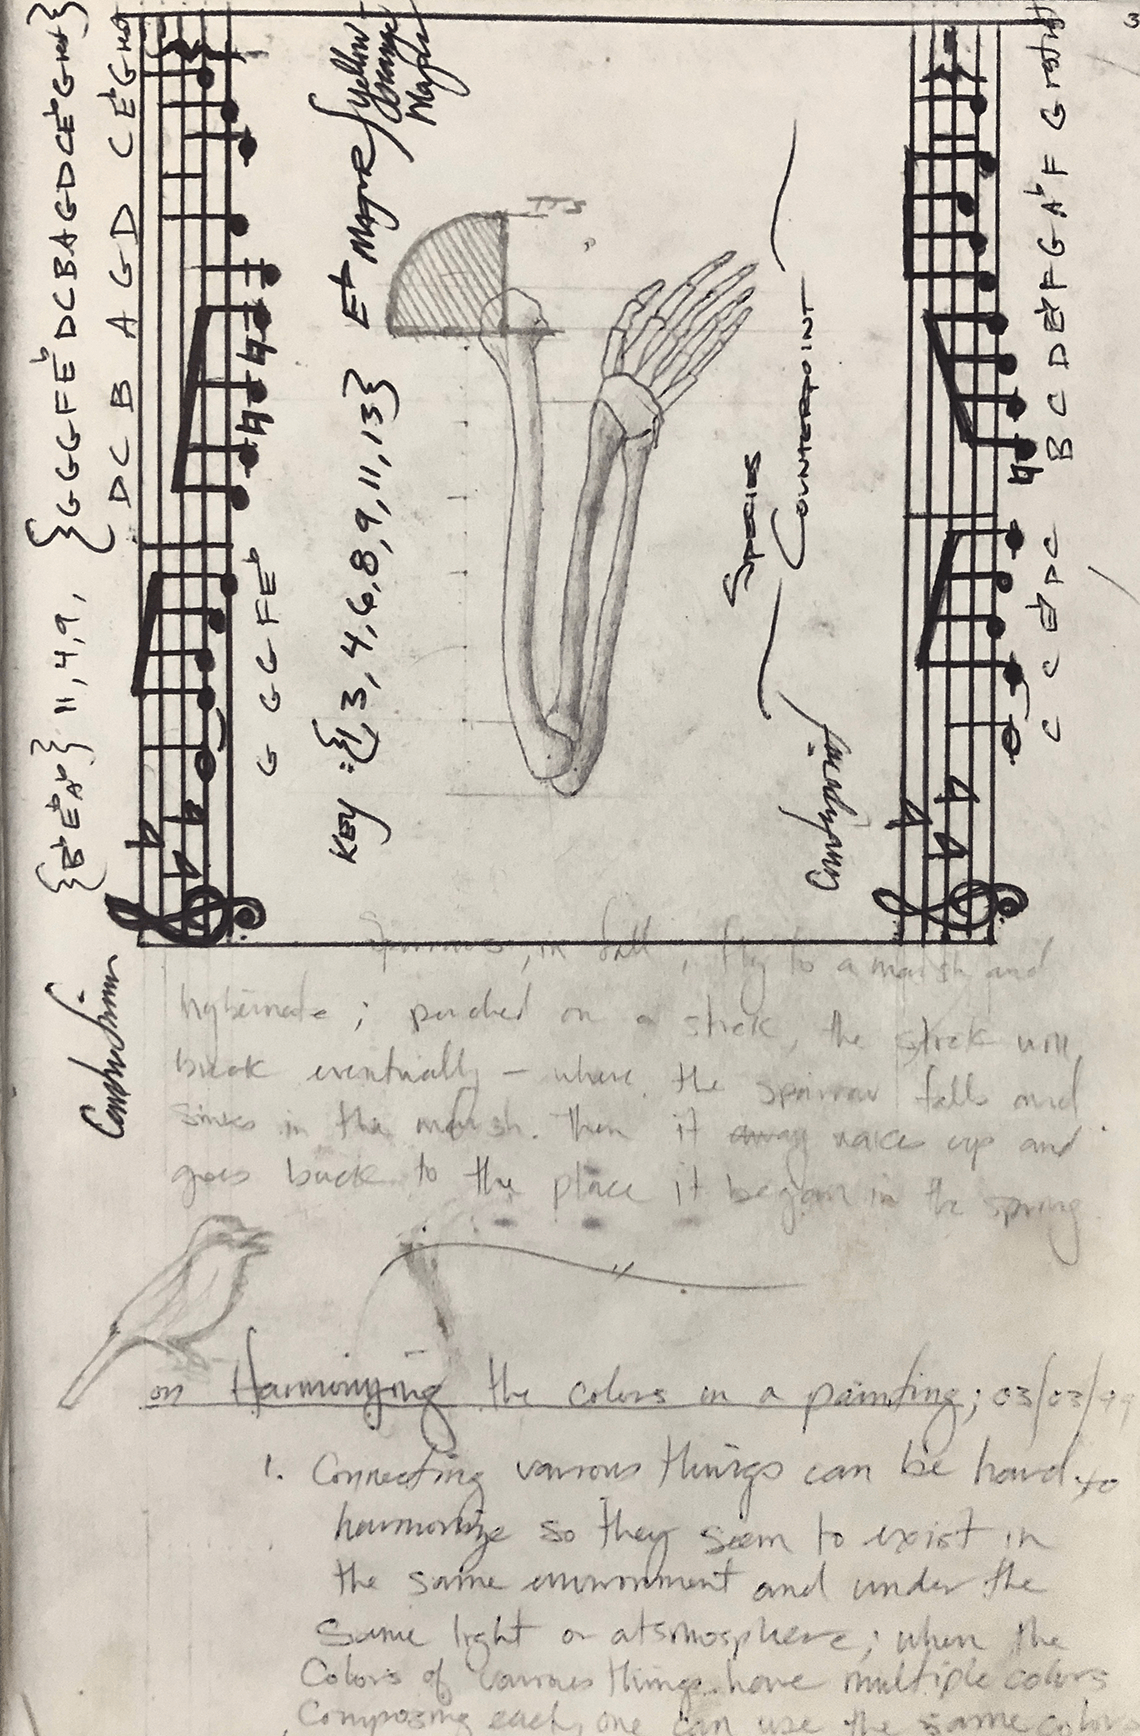 3
{GGGFE♭DCBAGDCE♭G rest}
DCB A GD CE♭G rest
{B♭E♭A♭} 11,4,9,
G G FE♭
KEY: {1,3,4,6,8,9,11,13}
E♭ MAJOR
yellow
orange
Maple
Species
COUNTERPOINT
C C E♭DC
B C D E♭ F G A♭ F G rest
Sparrows, in fall, fly to a marsh and
hybernate; perched on a stick, the stick will
break eventually – where the sparrow falls and
sinks in the marsh. Then it away wakes up and
goes back to the place it began in the spring
on Harmonying the colors in a painting; 03/03/99
1. Connecting various things can be hard to
harmonize so they seem to exist in
the same environment and under the
same light or atsmosphere; when the
Colors of various things have multiple colors
Composing each, one can use the same colors